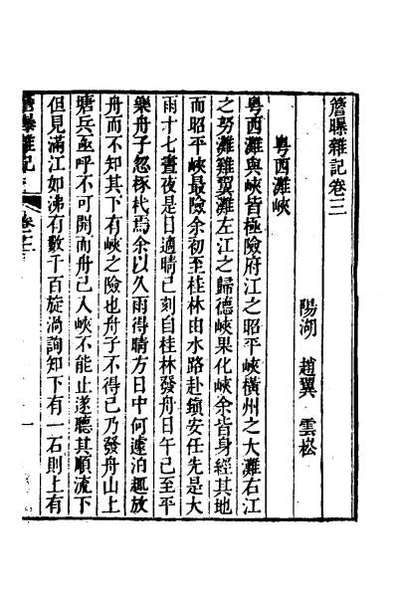 簷曝雜記卷三
陽湖 趙翼 雲崧
粤西灘峽
粤西灘與峽皆極險府江之昭平峽橫州之大灘右江
之努灘雞翼灘左江之歸德峽果化峽余皆身經其地
而昭平峽最險余初至桂林由水路赴鎮安任先是大
雨十七晝夜是日適晴巳刻自桂林發舟日午已至平
樂舟子忽椓杙焉余以久雨得晴方日中何遽泊趣放
舟而不知其下有峽之險也舟子不得已乃發舟山上
塘兵亟呼不可開而舟已入峽不能止遂聽其順流下
但見滿江如沸有數千百旋渦詢知下有一石則上有
簷曝雜記
卷三
一